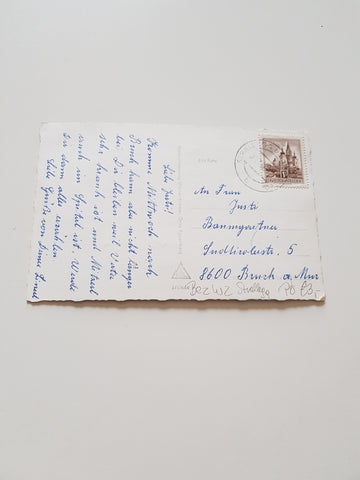 Liebe Justi!
Komme Mittwoch nach
Bruck kann aber nicht länger
bei Dir bleiben weil Vater
sehr krank ist und Micherl
noch im Spital ist. Werde
Dir dann alles erzählen
Liebe Grüße von Deiner
An Frau
Justi
Baumgartner
Südtirolerstr. 5
8600 Bruck a. Mur
Bez WZ
PÖ €3,-